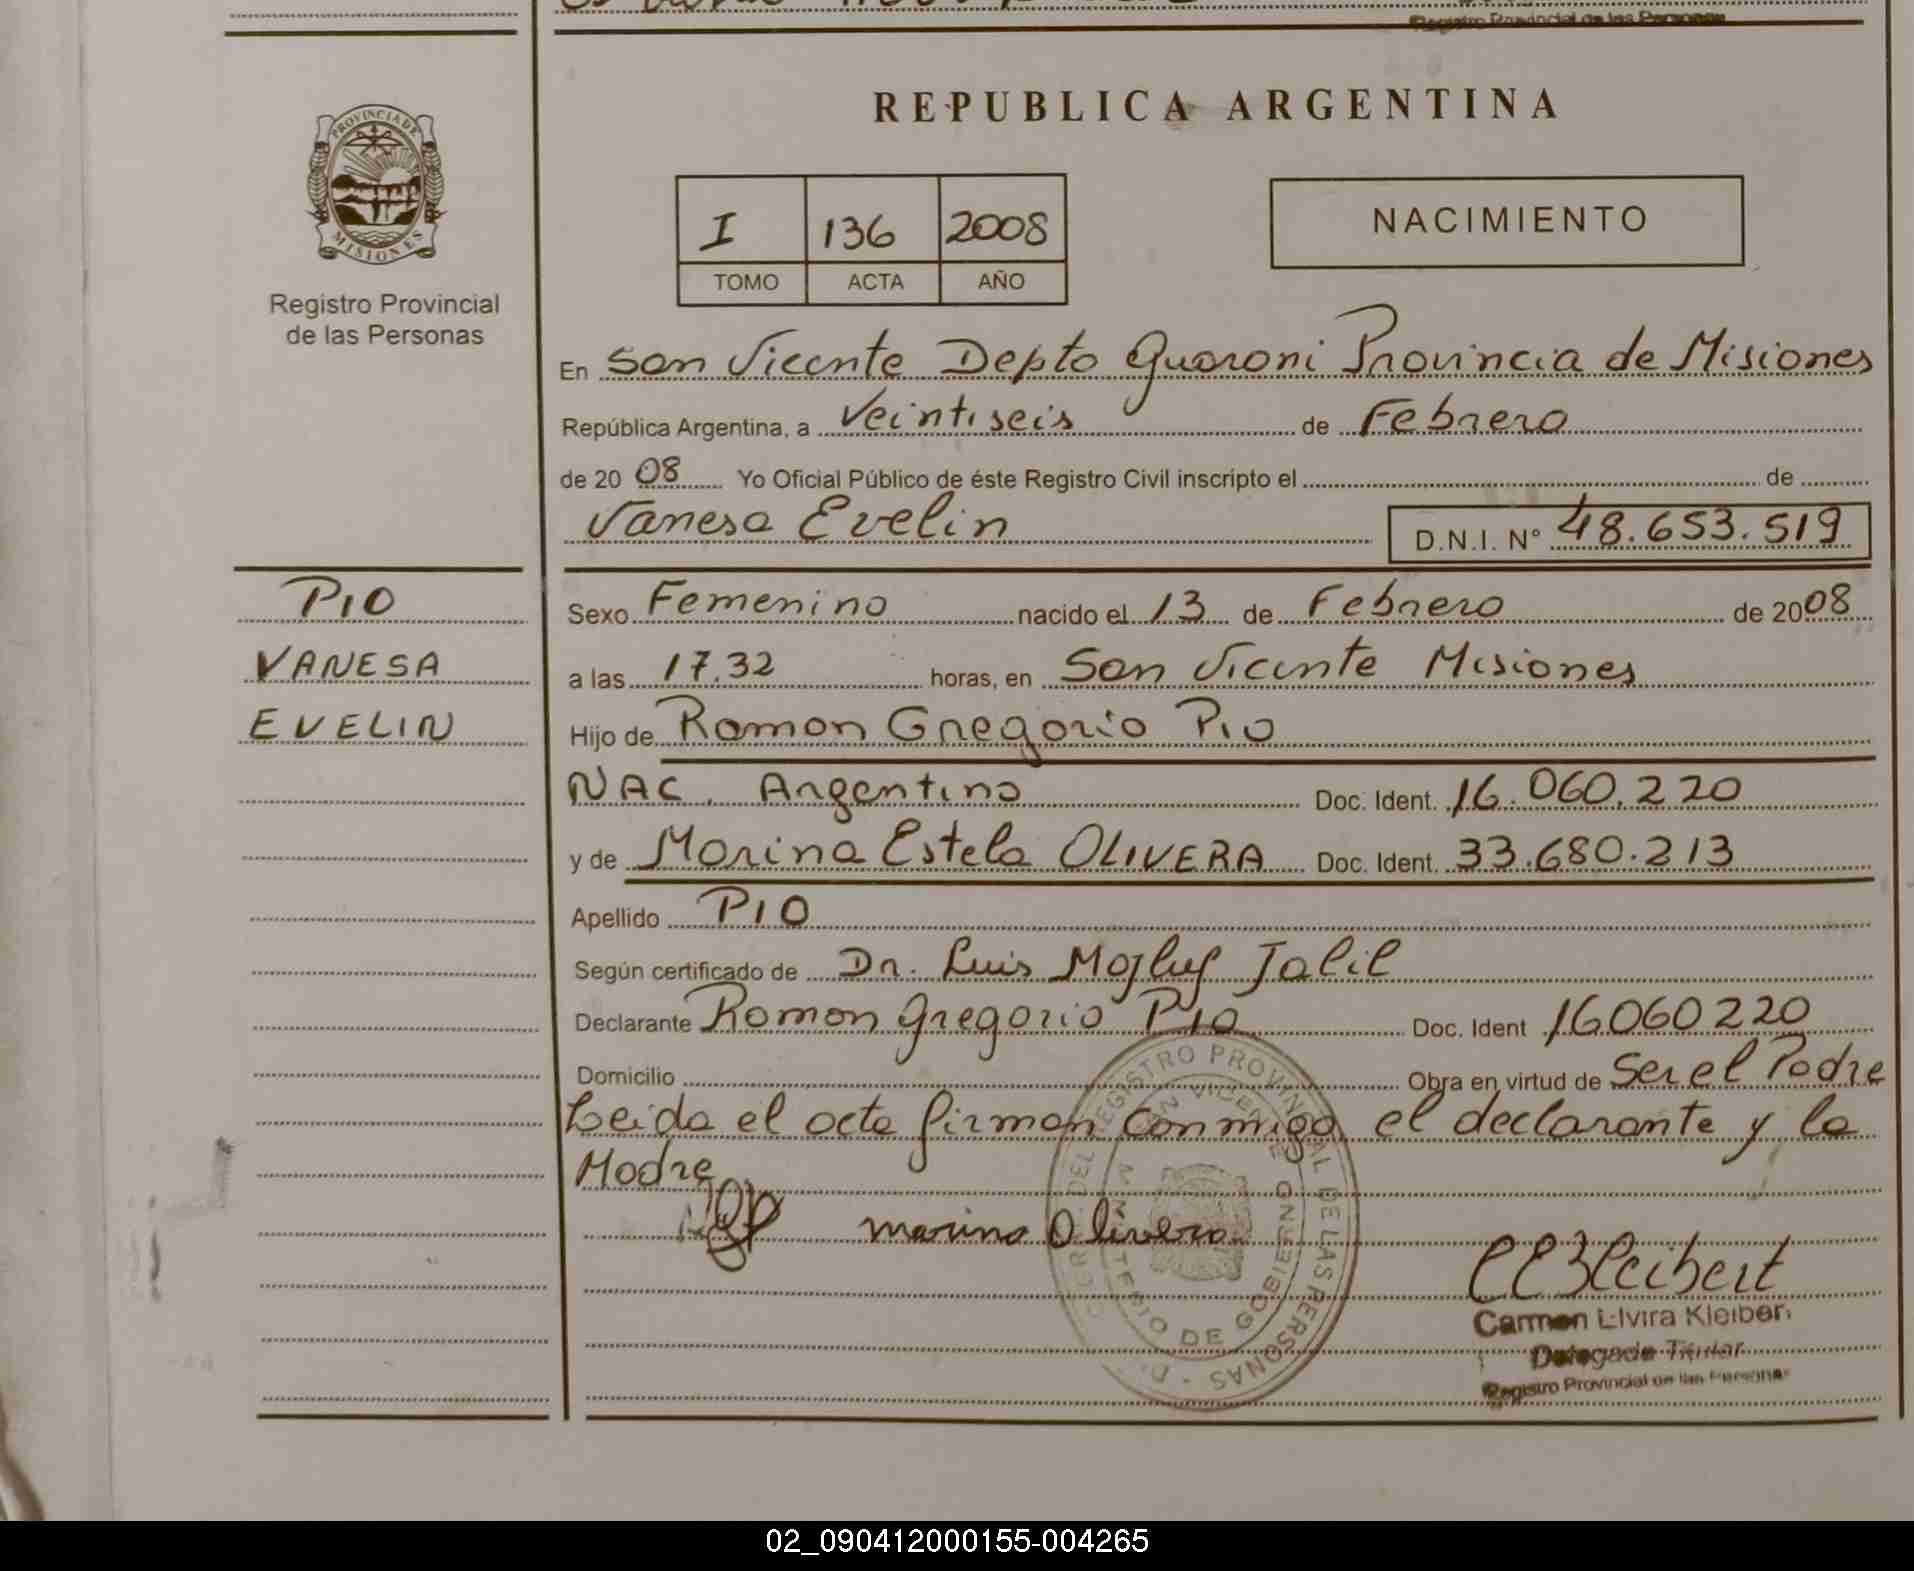 Registro Provincial de las Personas
REPUBLICA ARGENTINA
PROVINCIA DE
MISIONES
Registro Provincial
de las Personas
I 136 2008
TOMO ACTA AÑO
NACIMIENTO
En San Vicente Depto Guarani Provincia de Misiones
República Argentina, a Veintiseis de Febrero
de 20 08 Yo Oficial Público de éste Registro Civil inscripto el de
Vanesa Evelin D.N.I. N° 48.653.519
PIO
VANESA
EVELIN
Sexo Femenino nacido el 13 de Febrero de 2008
a las 17.32 horas, en San Vicente Misiones
Hijo de Ramon Gregorio Pio
NAC. Argentino Doc. Ident. 16.060.220
y de Marina Estela OLIVERA Doc. Ident. 33.680.213
Apellido PIO
Según certificado de Dr. Luis Jalil
Declarante Ramon Gregorio Pio Doc. Ident 16060220
Domicilio Obra en virtud de Ser el Padre
Leida el acta firman conmigo el declarante y la
Madre
marina Olivera
REGISTRO PROVINCIAL DE LAS PERSONAS
SAN VICENTE
MINISTERIO DE GOBIERNO
Carmen Elvira Kleibert
Delegada Titular
Registro Provincial de las Personas
02_090412000155-004265